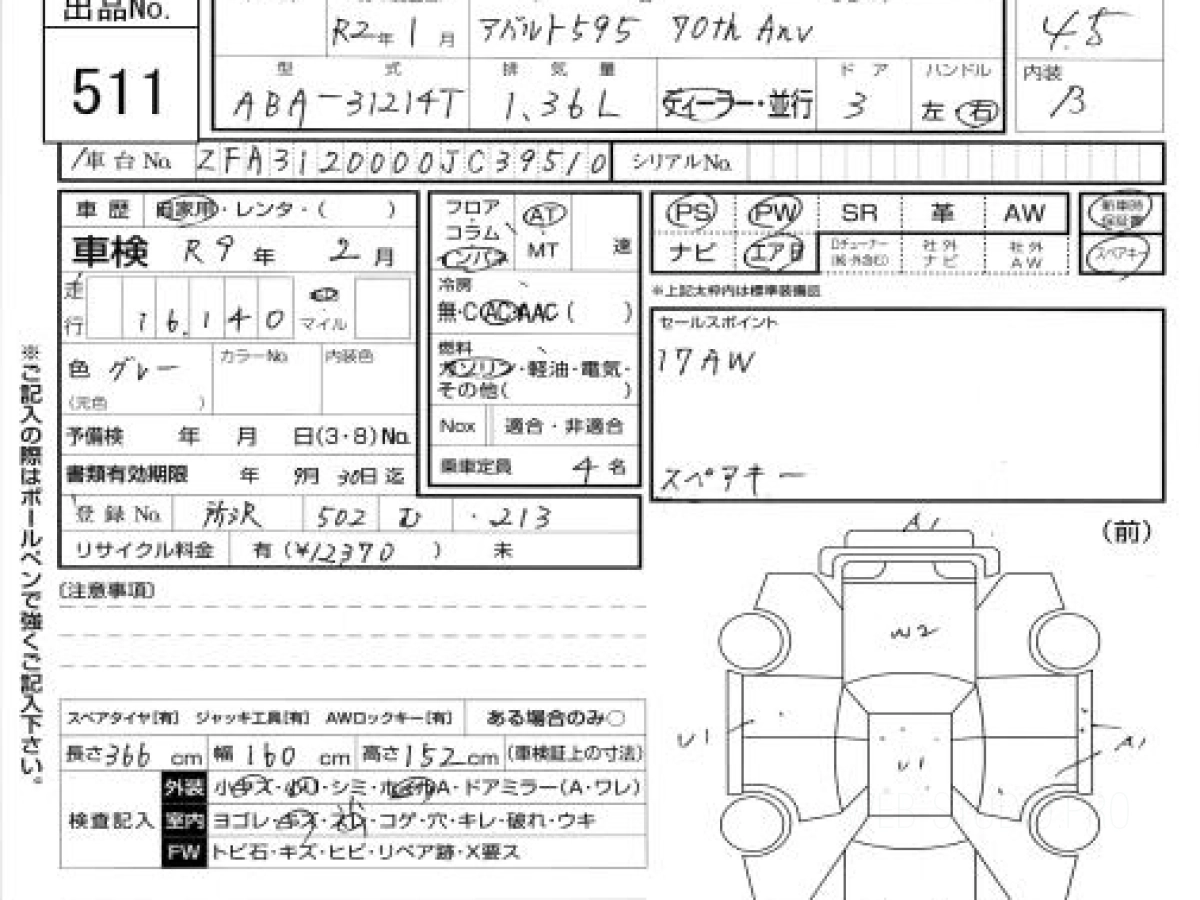 出品No.
511
R2年 1月 アバルト595 70th Anv
4.5
型式 排気量 ドア ハンドル 内装
ABA-31214T 1.36L ディーラー・並行 3 左 右 B
車台No. ZFA3120000JC39510 シリアルNo.
車歴 自家用・レンタ・( )
車検 R9年 2月
走行 16.140 マイル
色 グレー カラーNo. 内装色
(元色 )
予備検 年 月 日(3・8)No.
書類有効期限 年 9月 30日 迄
登録No. 所沢 502 む ・213
リサイクル料金 有 (¥12370 ) 未
フロア
コラム
インパネ
AT
MT
速
冷房
無・C AC AAC ( )
燃料
ガソリン・軽油・電気・
その他( )
Nox 適合・非適合
乗車定員 4名
PS PW SR 革 AW 新車時保証書
ナビ エアB Dチューナー 社外ナビ 社外AW スペアキー
※上記太枠内は標準装備品
セールスポイント
17AW
スペアキー
※ご記入の際はボールペンで強くご記入下さい。
〔注意事項〕
スペアタイヤ[有] ジャッキ工具[有] AWロックキー[有] ある場合のみ○
長さ366cm 幅160cm 高さ152cm (車検証上の寸法)
検査記入
外装 小キズ・凹・シミ・ホイールA・ドアミラー(A・ワレ)
室内 ヨゴレ・キズ・スレ・コゲ・穴・キレ・破れ・ウキ
FW トビ石・キズ・ヒビ・リペア跡・X要ス
(前)
A1
W2
U1
U1
A1